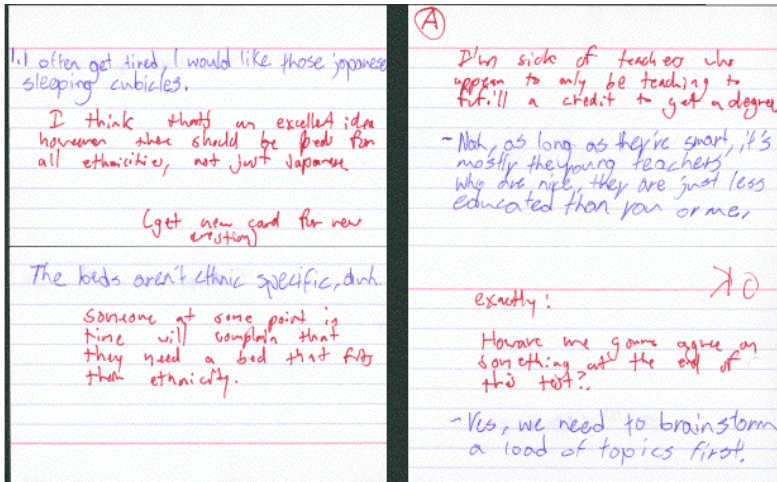 1. I often get tired, I would like those japanese
sleeping cubicles.
I think that's an excellent idea
however there should be beds for
all ethnicities, not just Japanese
(get new card for new
question)
The beds aren't ethnic specific, duh.
Someone at some point in
time will complain that
they need a bed that fits
their ethnicity.
A
I'm sick of teachers who
appear to only be teaching to
fulfill a credit to get a degree
- Nah, as long as they're smart, it's
mostly the young teachers
who are nice, they are just less
educated than you or me.
OK
exactly!
How are we gonna agree on
something at the end of
this test?
- Yes, we need to brainstorm
a load of topics first.